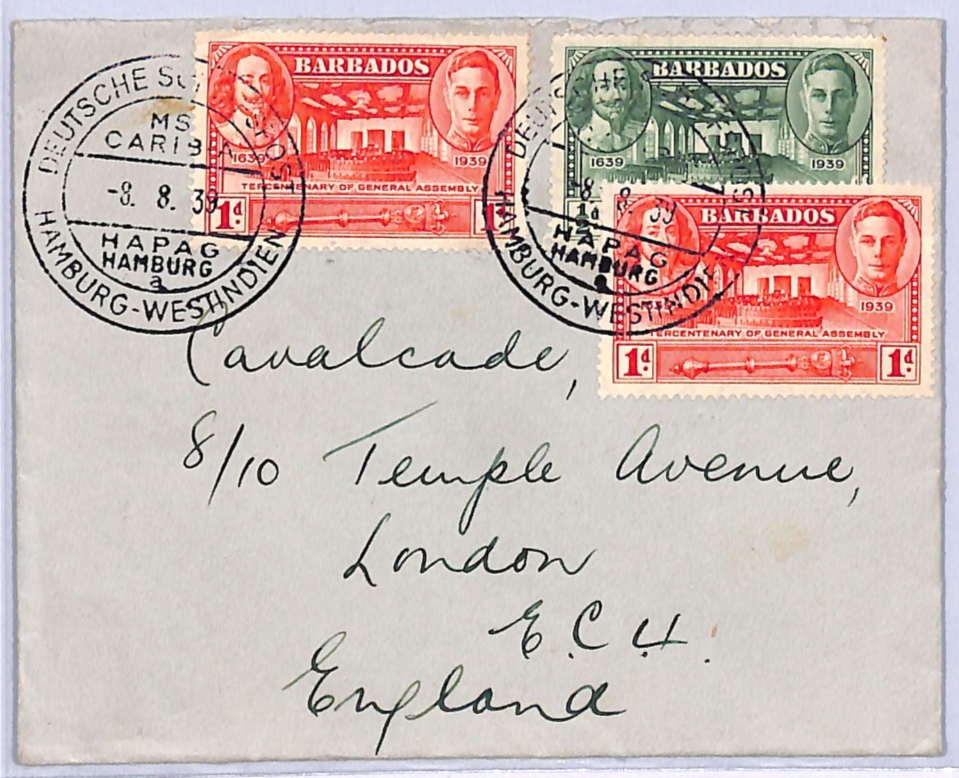 BARBADOS
1639 1939
TERCENTENARY OF GENERAL ASSEMBLY
1d 1d
BARBADOS
1639 1939
½d
BARBADOS
1939
TERCENTENARY OF GENERAL ASSEMBLY
1d 1d
DEUTSCHE
MS
CARIBIA
-8. 8. 39
HAPAG
HAMBURG
a
HAMBURG-WESTINDIEN
8 39
HAPAG
HAMBURG
a
HAMBURG-WESTINDIE
Cavalcade,
8/10 Temple Avenue,
London
E.C.4.
England